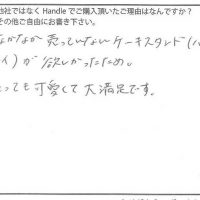 他社ではなく Handle でご購入頂いたご理由はなんですか？
その他ご自由にお書き下さい。
なかなか売っていないケーキスタンド(ハ
イ)が欲しかったため。
とっても可愛くて大満足です。